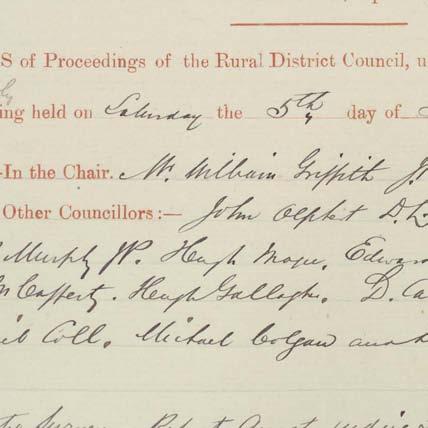 S of Proceedings of the Rural District Council, u
ing held on Saturday the 5th day of
-In the Chair. Mr. William Griffith J.
Other Councillors :— John Olphert D.L.
Murphy JP. Hugh Edward
McCafferty. Hugh Gallagher. D. Ca
Coll. Michael Colgan and
Report